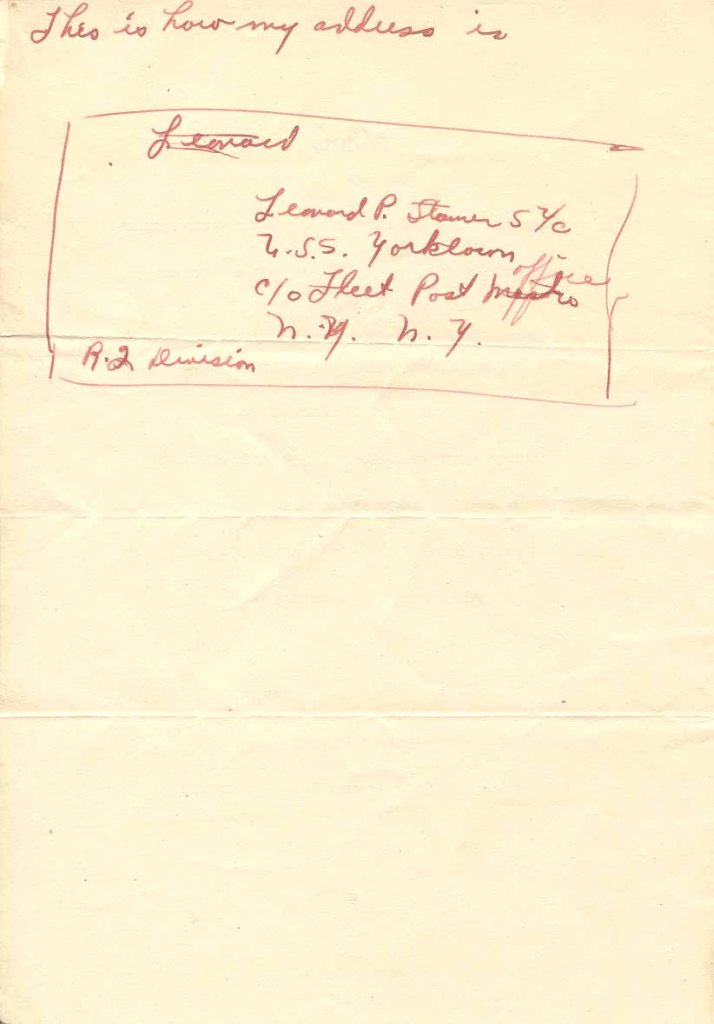 Thes is how my address is
Leonard
Leonard P. Stamer S 2/c
U.S.S. Yorktown
c/o Fleet Post office
N.Y. N.Y.
R-2 Division